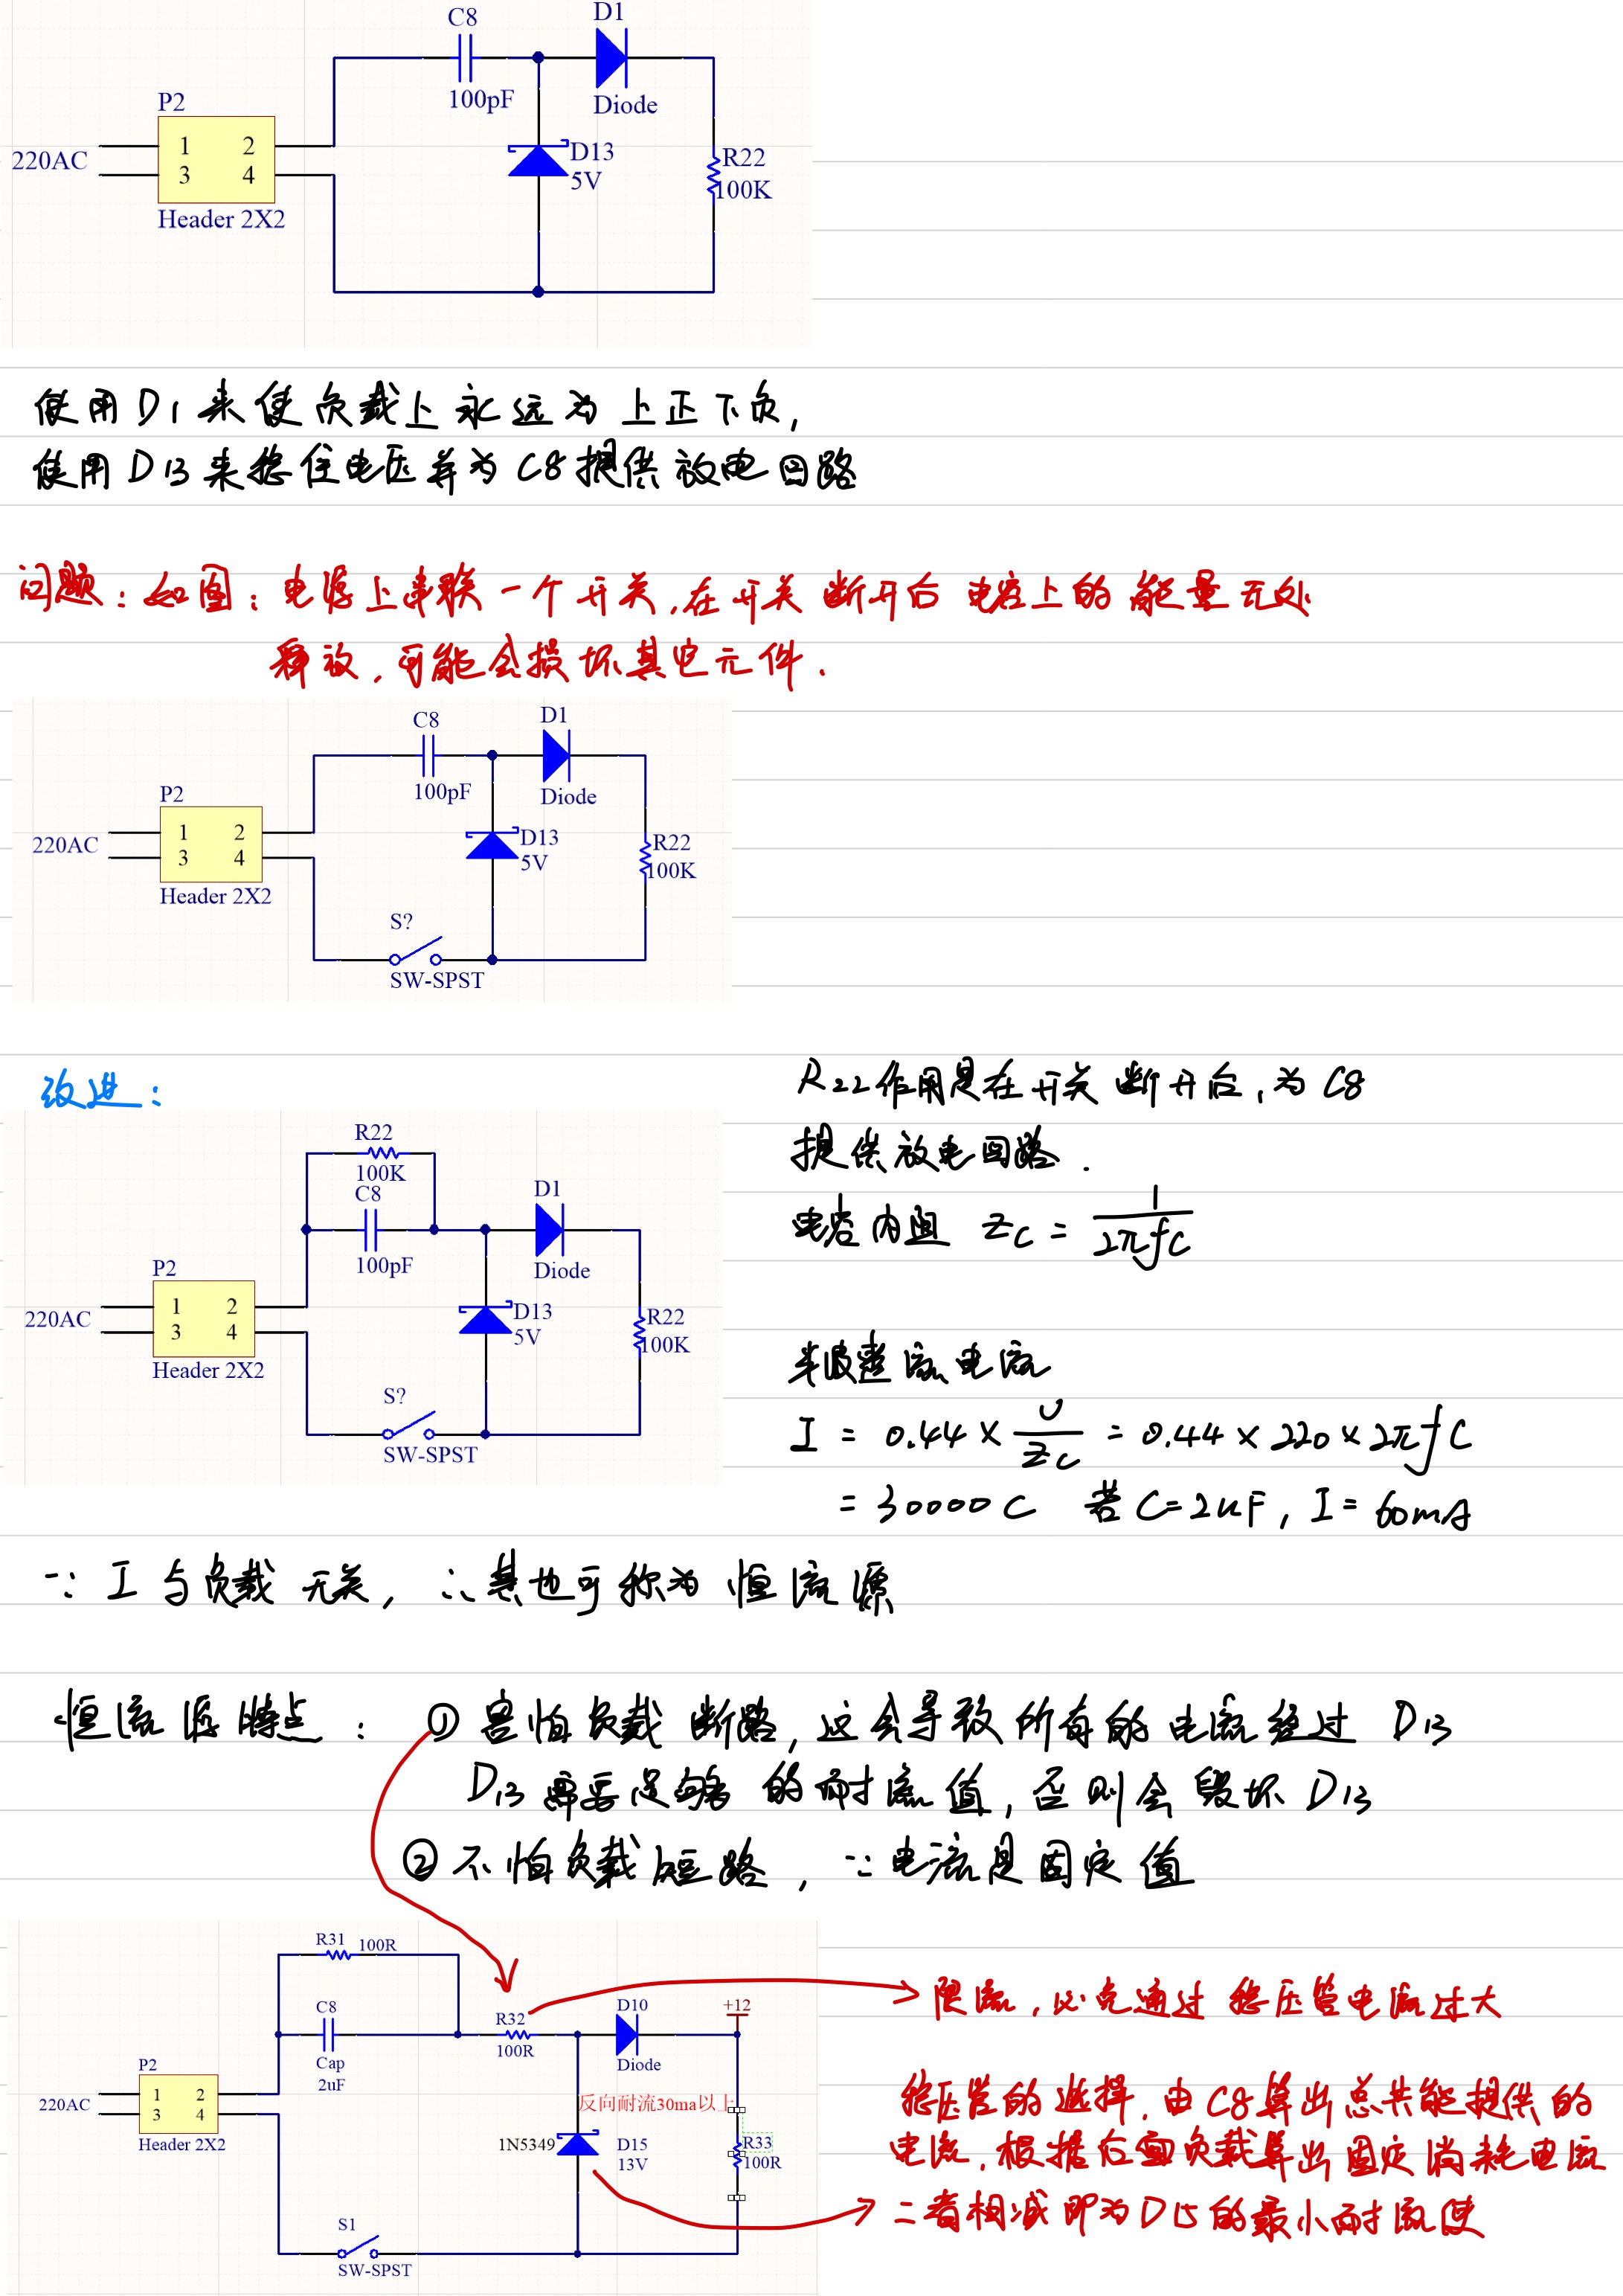 C8
D1
100pF
Diode
P2
220AC
1 2
3 4
Header 2X2
D13
5V
R22
100K
使用D1来使负载上永远为上正下负,
使用D13来稳住电压并为C8提供放电回路
问题:如图:电源上串联一个开关,在开关断开后电容上的能量无处
释放,可能会损坏其它元件.
C8
D1
100pF
Diode
P2
220AC
1 2
3 4
Header 2X2
D13
5V
R22
100K
S?
SW-SPST
改进:
R22
100K
C8
100pF
D1
Diode
P2
220AC
1 2
3 4
Header 2X2
D13
5V
R22
100K
S?
SW-SPST
R22作用是在开关断开后,为C8
提供放电回路.
电容内阻 Zc = 1/(2πfC)
半波整流电流
I = 0.44 × U/Zc = 0.44 × 220 × 2πfC
= 30000C 若C=2uF, I=60mA
∵ I与负载无关, ∴其也可称为恒流源
恒流源特点: ① 害怕负载断路,这会导致所有的电流经过D13
D13需要足够的耐流值,否则会毁坏D13
② 不怕负载短路, ∵电流是固定值
R31
100R
C8
Cap
2uF
R32
100R
D10
Diode
+12
P2
220AC
1 2
3 4
Header 2X2
反向耐流30ma以上
1N5349
D15
13V
R33
100R
S1
SW-SPST
限流,以免通过稳压管电流过大
稳压管的选择,由C8算出总共能提供的
电流,根据后面负载算出固定消耗电流
二者相减即为D15的最小耐流值